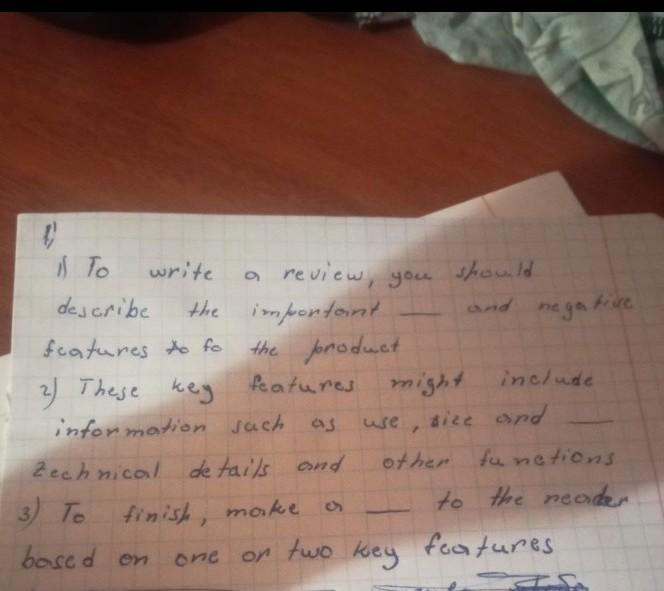 1) To write a review, you should
describe the important __ and negative
features to fo the product
2) These key features might include
information such as use, size and __
technical details and other functions
3) To finish, make a __ to the reader
based on one or two key features